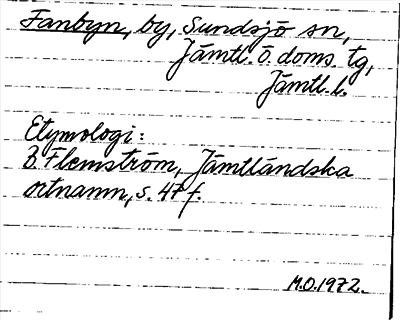 Fanbyn, by, Sundsjö sn,
Jämtl. ö. doms. tg,
Jämtl. l.
Etymologi:
B. Flemström, Jämtländska
ortnamn, s. 47 f.
M.O. 1972.